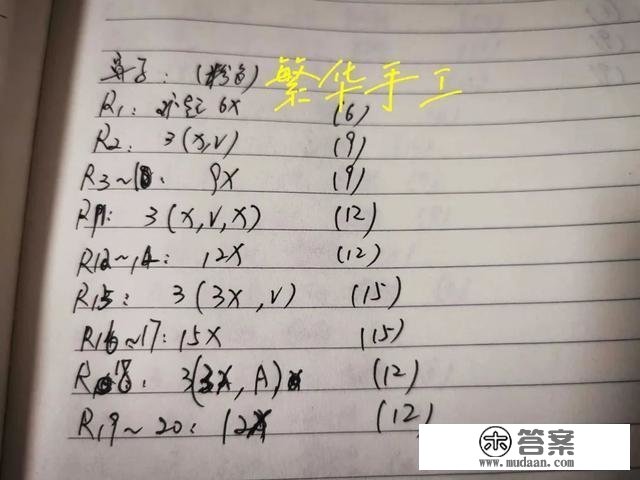 鼻子：(粉色) 繁华手工
R1: 环起 6X (6)
R2: 3(X,V) (9)
R3~10: 9X (9)
R11: 3(X,V,X) (12)
R12~14: 12X (12)
R15: 3(3X,V) (15)
R16~17: 15X (15)
R18: 3(3X,A) (12)
R19~20: 12X (12)
答案
www.mudaan.com